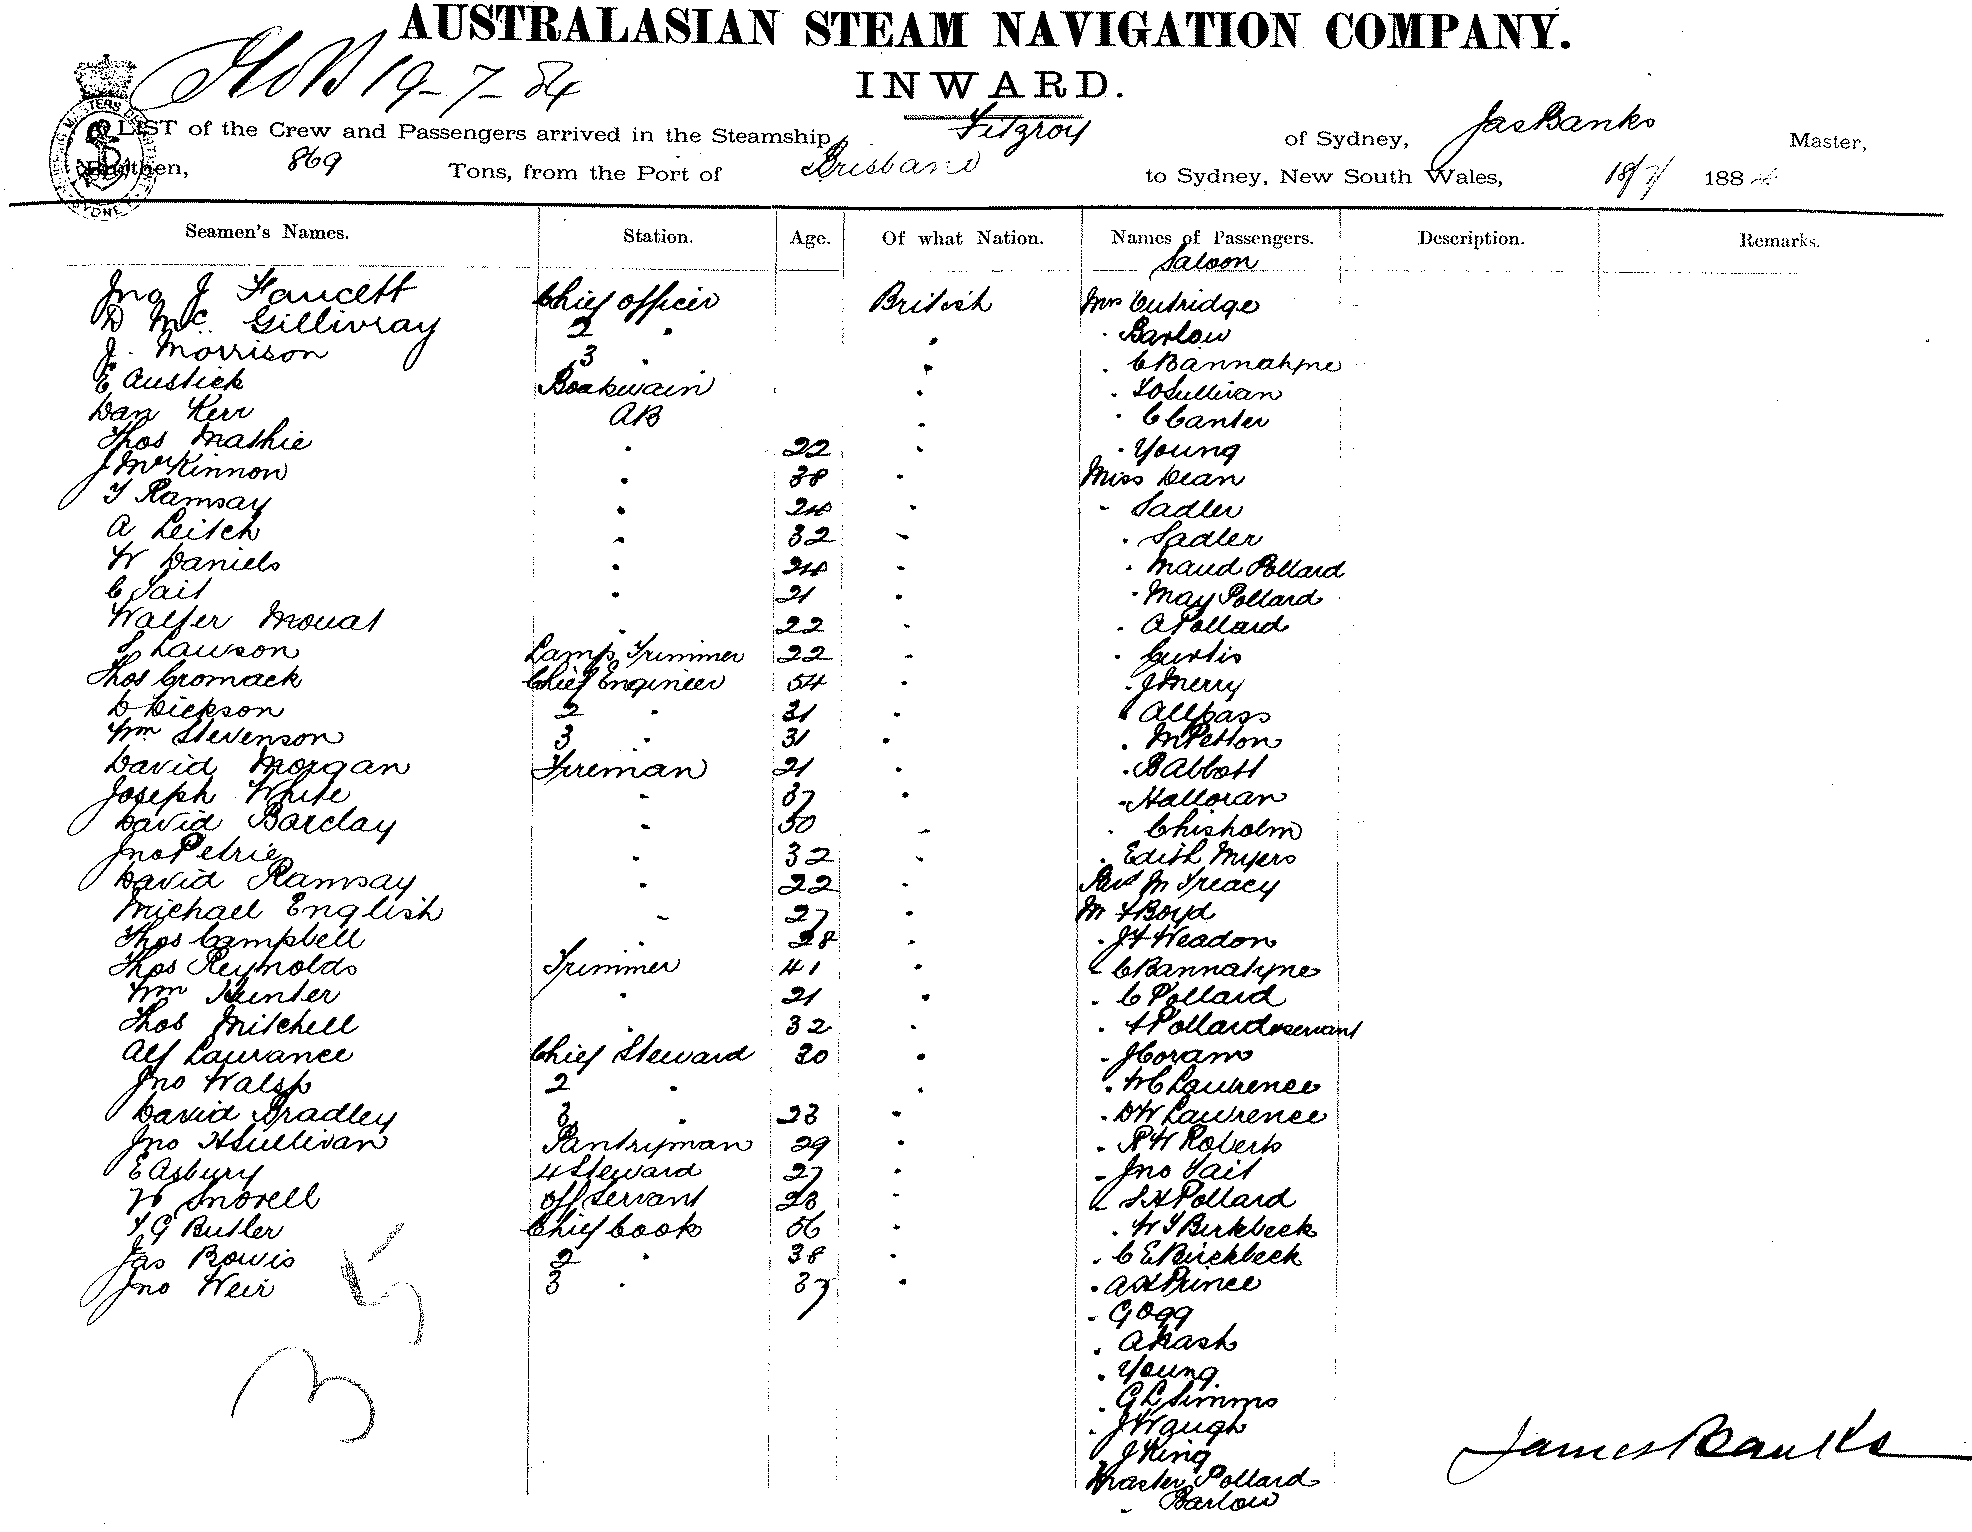 AUSTRALASIAN STEAM NAVIGATION COMPANY.
19-7-84
INWARD.
LIST of the Crew and Passengers arrived in the Steamship Fitzroy of Sydney, Jas Banks Master,
Burthen, 869 Tons, from the Port of Brisbane to Sydney, New South Wales, 18/7/ 1884
Seamen's Names. Station. Age. Of what Nation. Names of Passengers. Description. Remarks.
Saloon
Jno J Faucett Chief Officer British Mrs Cutridge
D McGillivray 2 " " " Barlow
J. Morrison 3 " " " C Bannatyne
E Austick Boatswain " " T O Sullivan
Dan Kerr AB " " C Canter
Thos Mathie " 22 " " Young
J McKinnon " 38 " Miss Dean
T Ramsay " 24 " " Sadler
A Leitch " 32 " " Sadler
W Daniels " 24 " " Maud Pollard
C Tait " 21 " " May Pollard
Walter Mouat " 22 " " A Pollard
S Lawson Lamp Trimmer 22 " " Curtis
Thos Cromack Chief Engineer 54 " " J Merry
D Dickson 2 " 31 " " Allpass
Wm Stevenson 3 " 31 " " M Petton
David Morgan Fireman 21 " " B Abbott
Joseph White " 37 " " Halloran
David Barclay " 50 " " Chisholm
Jno Petrie " 32 " " Edith Myers
David Ramsay " 22 " Revd M Treacy
Michael English " 27 " M F Boyd
Thos Campbell 28 " " J F Weadon
Thos Reynolds Trimmer 41 " " C Bannatyne
Wm Hunter " 21 " " C Pollard
Thos Mitchell " 32 " " F Pollard & servant
Alf Laurance Chief Steward 30 " " J Coram
Jno Walsh 2 " " " W C Lawrence
David Bradley 3 " 23 " " D W Lawrence
Jno H Sullivan Pantryman 29 " " R W Roberts
E Asbury 4 Steward 27 " " Jno Tait
W Snovell Off Servant 23 " " S H Pollard
T G Butler Chief Cook 56 " " W T Birkbeck
Jas Bowis 2 " 38 " " C E Birckbeck
Jno Weir 3 " 37 " " A H Prince
" G Ogg
" A Kash
" Young
" G L Simms
" J Waugh
" J King
Master Pollard
" Barlow
35
James Banks